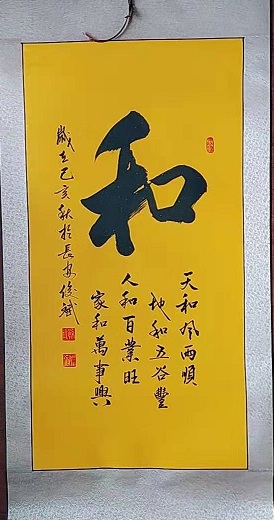 和
天和风雨順
地和五谷豐
人和百業旺
家和萬事興
歲在己亥秋於長安俊斌